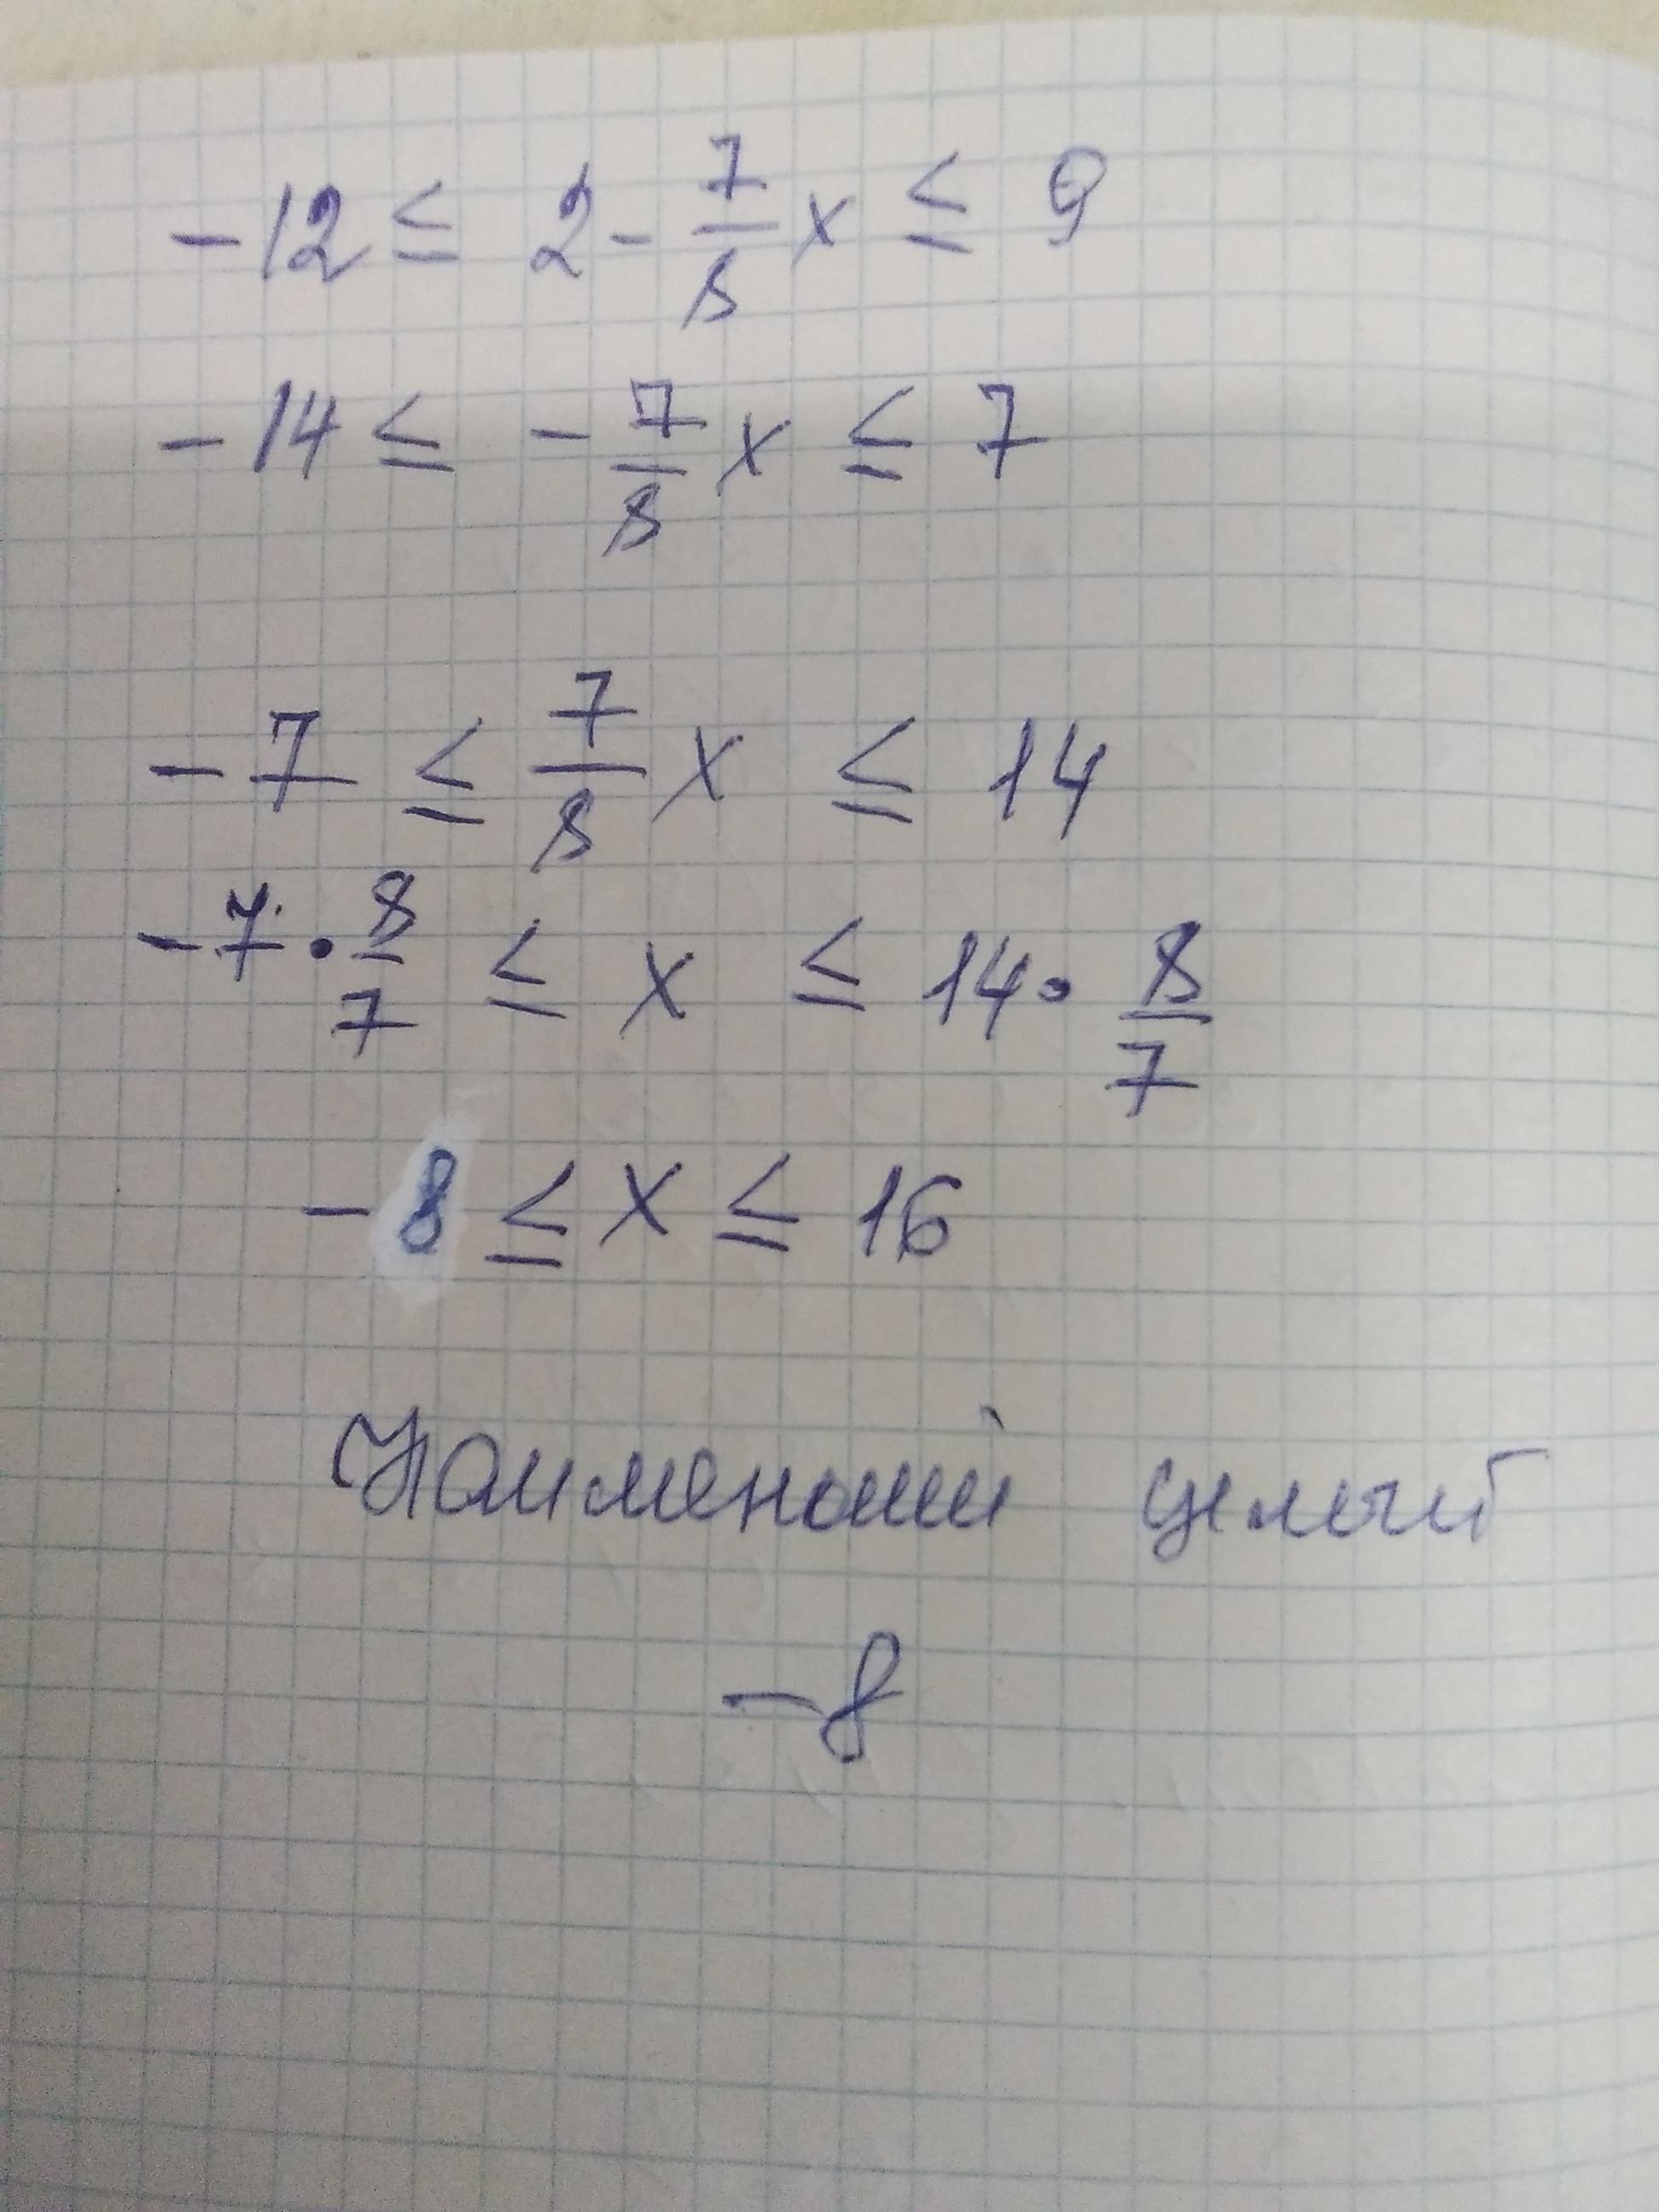 -12 ≤ 2 - 7/8 x ≤ 9
-14 ≤ - 7/8 x ≤ 7
-7 ≤ 7/8 x ≤ 14
-7 · 8/7 ≤ x ≤ 14 · 8/7
-8 ≤ x ≤ 16
Наименьший целый
-8